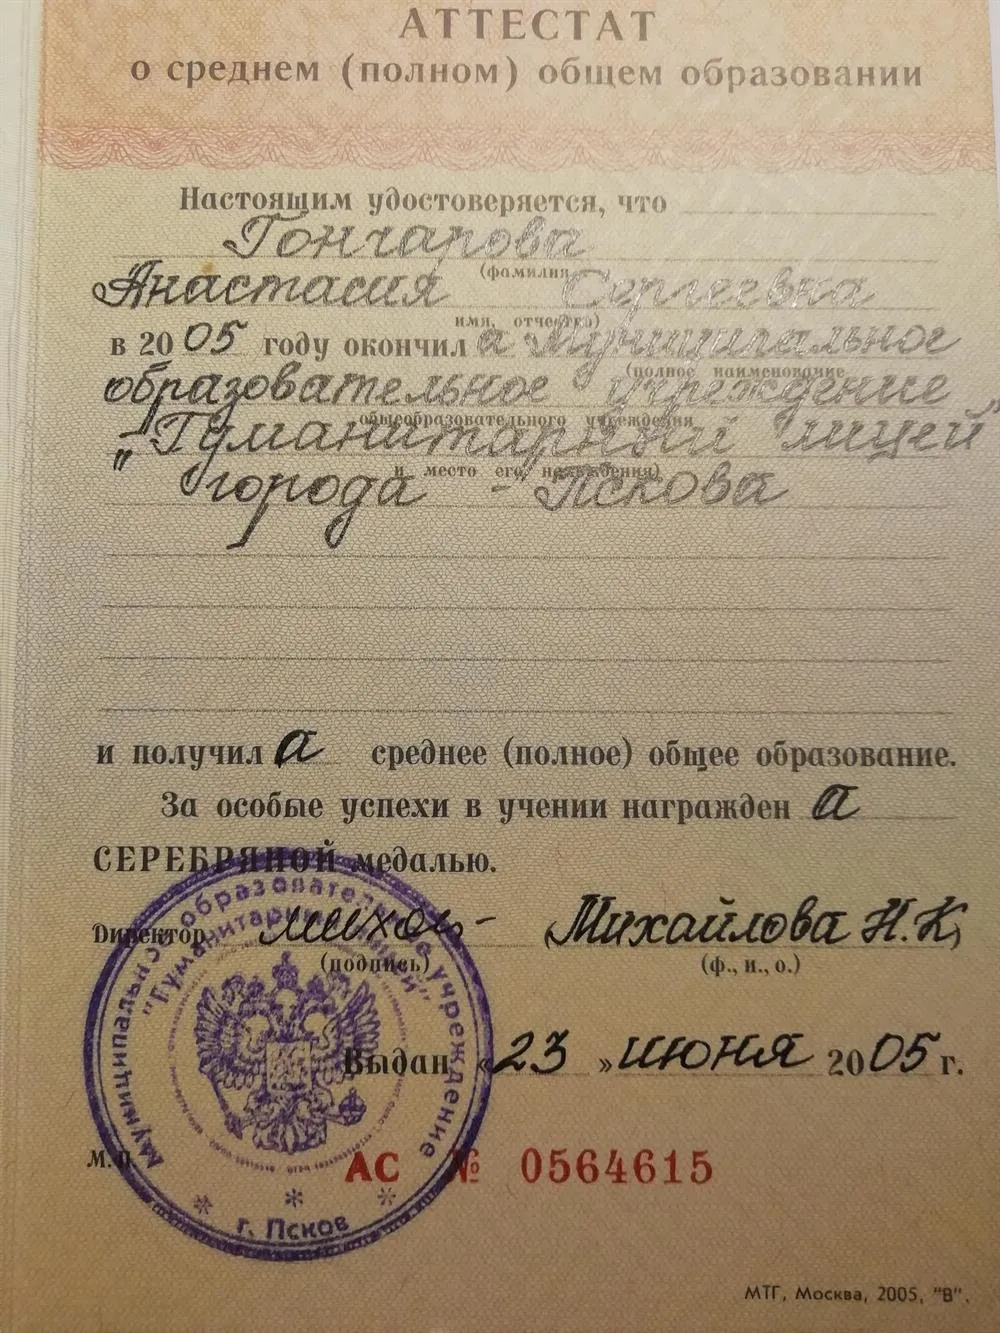 АТТЕСТАТ
о среднем (полном) общем образовании
Настоящим удостоверяется, что
Гончарова
(фамилия,
Анастасия Сергеевна
имя, отчество)
в 2005 году окончила Муниципальное
(полное наименование
образовательное учреждение
общеобразовательного учреждения
"Гуманитарный лицей"
и место его нахождения)
города Пскова
и получила среднее (полное) общее образование.
За особые успехи в учении награждена
СЕРЕБРЯНОЙ медалью.
Директор Михайлова Н.К.
(подпись) (ф., и., о.)
Выдан «23» июня 2005 г.
М.П.
АС № 0564615
Муниципальное образовательное учреждение
"Гуманитарный лицей"
г. Псков
МТГ, Москва, 2005, "В".